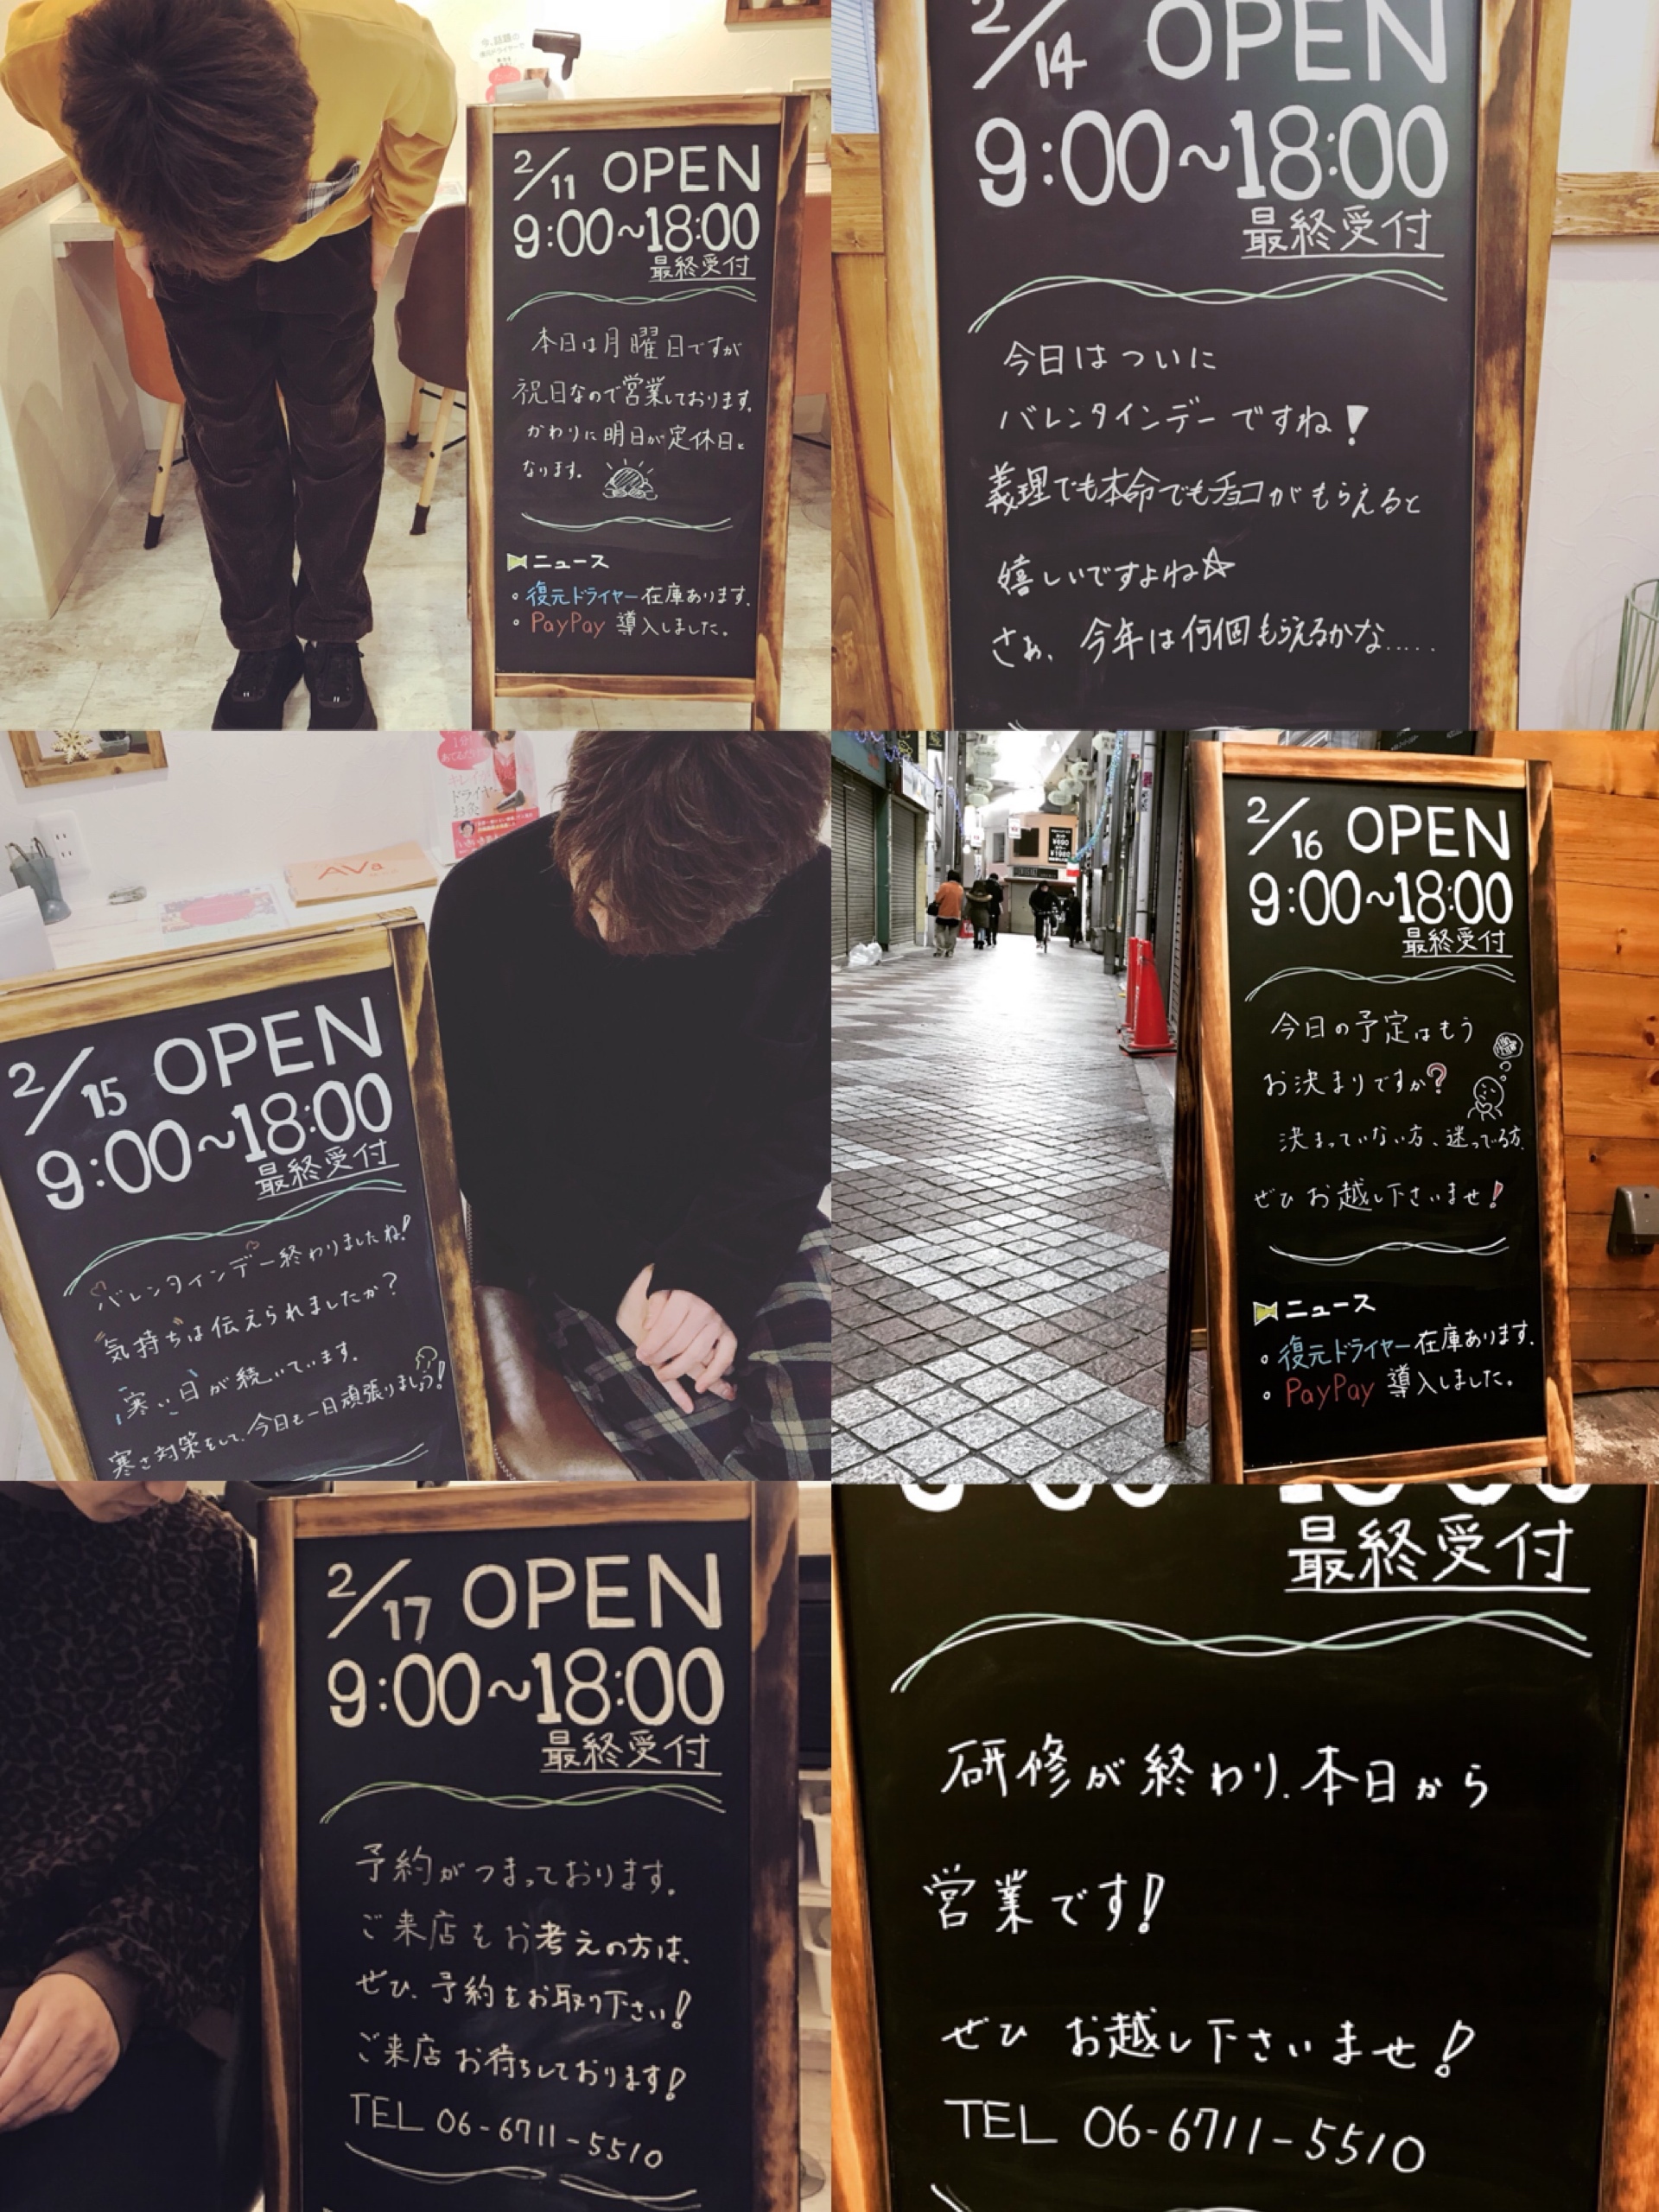 今、話題の
2/11 OPEN
9:00~18:00
最終受付
本日は月曜日ですが
祝日なので営業しております。
かわりに明日が定休日と
なります。
ニュース
。復元ドライヤー在庫あります。
。PayPay 導入しました。
2/14 OPEN
9:00~18:00
最終受付
今日はついに
バレンタインデーですね!
義理でも本命でもチョコがもらえると
嬉しいですよね☆
さぁ、今年は何個もらえるかな.....
キレイの
ドライヤー
お灸
AVa
2/15 OPEN
9:00~18:00
最終受付
バレンタインデー終わりましたね!
"気持ち"は伝えられましたか?
寒い日が続いています。
寒さ対策をして、今日も一日頑張りましょう!
¥690
¥1980
2/16 OPEN
9:00~18:00
最終受付
今日の予定はもう
お決まりですか?
決まっていない方、迷ってる方
ぜひお越し下さいませ!
ニュース
。復元ドライヤー在庫あります。
。PayPay 導入しました。
2/17 OPEN
9:00~18:00
最終受付
予約がつまっております。
ご来店をお考えの方は、
ぜひ、予約をお取り下さい!
ご来店お待ちしております!
TEL 06-6711-5510
最終受付
研修が終わり、本日から
営業です!
ぜひ お越し下さいませ!
TEL 06-6711-5510